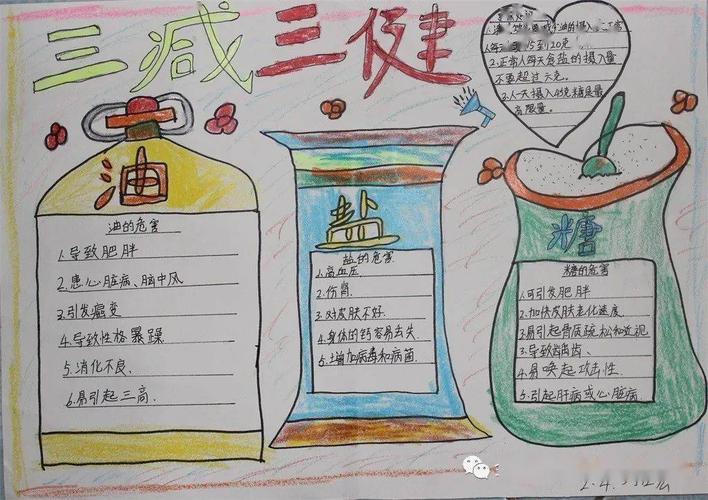 三减三健
2.正常人每天食盐的摄入量
不要超过六克。
3.人一天摄入4克糖是最
高限量。
油
油的危害
1.导致肥胖
2.患心脏病、脑中风
3.引发癌变
4.导致性格暴躁
5.消化不良、
6.易引起三高、
盐
盐的危害
1.高血压
2.伤肾、
3.对皮肤不好、
4.身体的钙容易去失
5.增加病毒和病菌
糖
糖的危害
1.可引发肥胖
2.加快皮肤老化速度、
3.易引起骨质疏松和近视
3.导致龋齿、
4.易唤起攻击性、
5.引起肝病或心脏病、